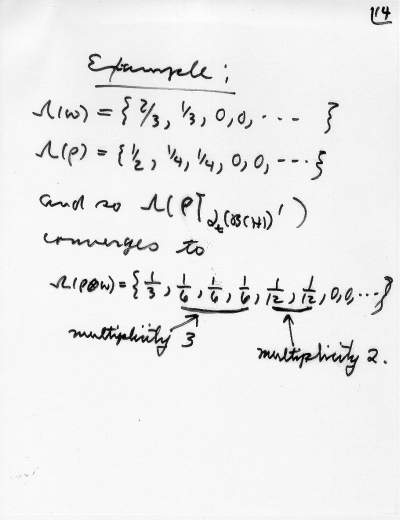 114
Example:
Λ(ω) = { 2/3, 1/3, 0, 0, ··· }
Λ(ρ) = { 1/2, 1/4, 1/4, 0, 0, ··· }
and so Λ(ρ↾α_t(B(H))′)
converges to
Λ(ρ⊗ω) = { 1/3, 1/6, 1/6, 1/6, 1/12, 1/12, 0, 0, ··· }
multiplicity 3
multiplicity 2.